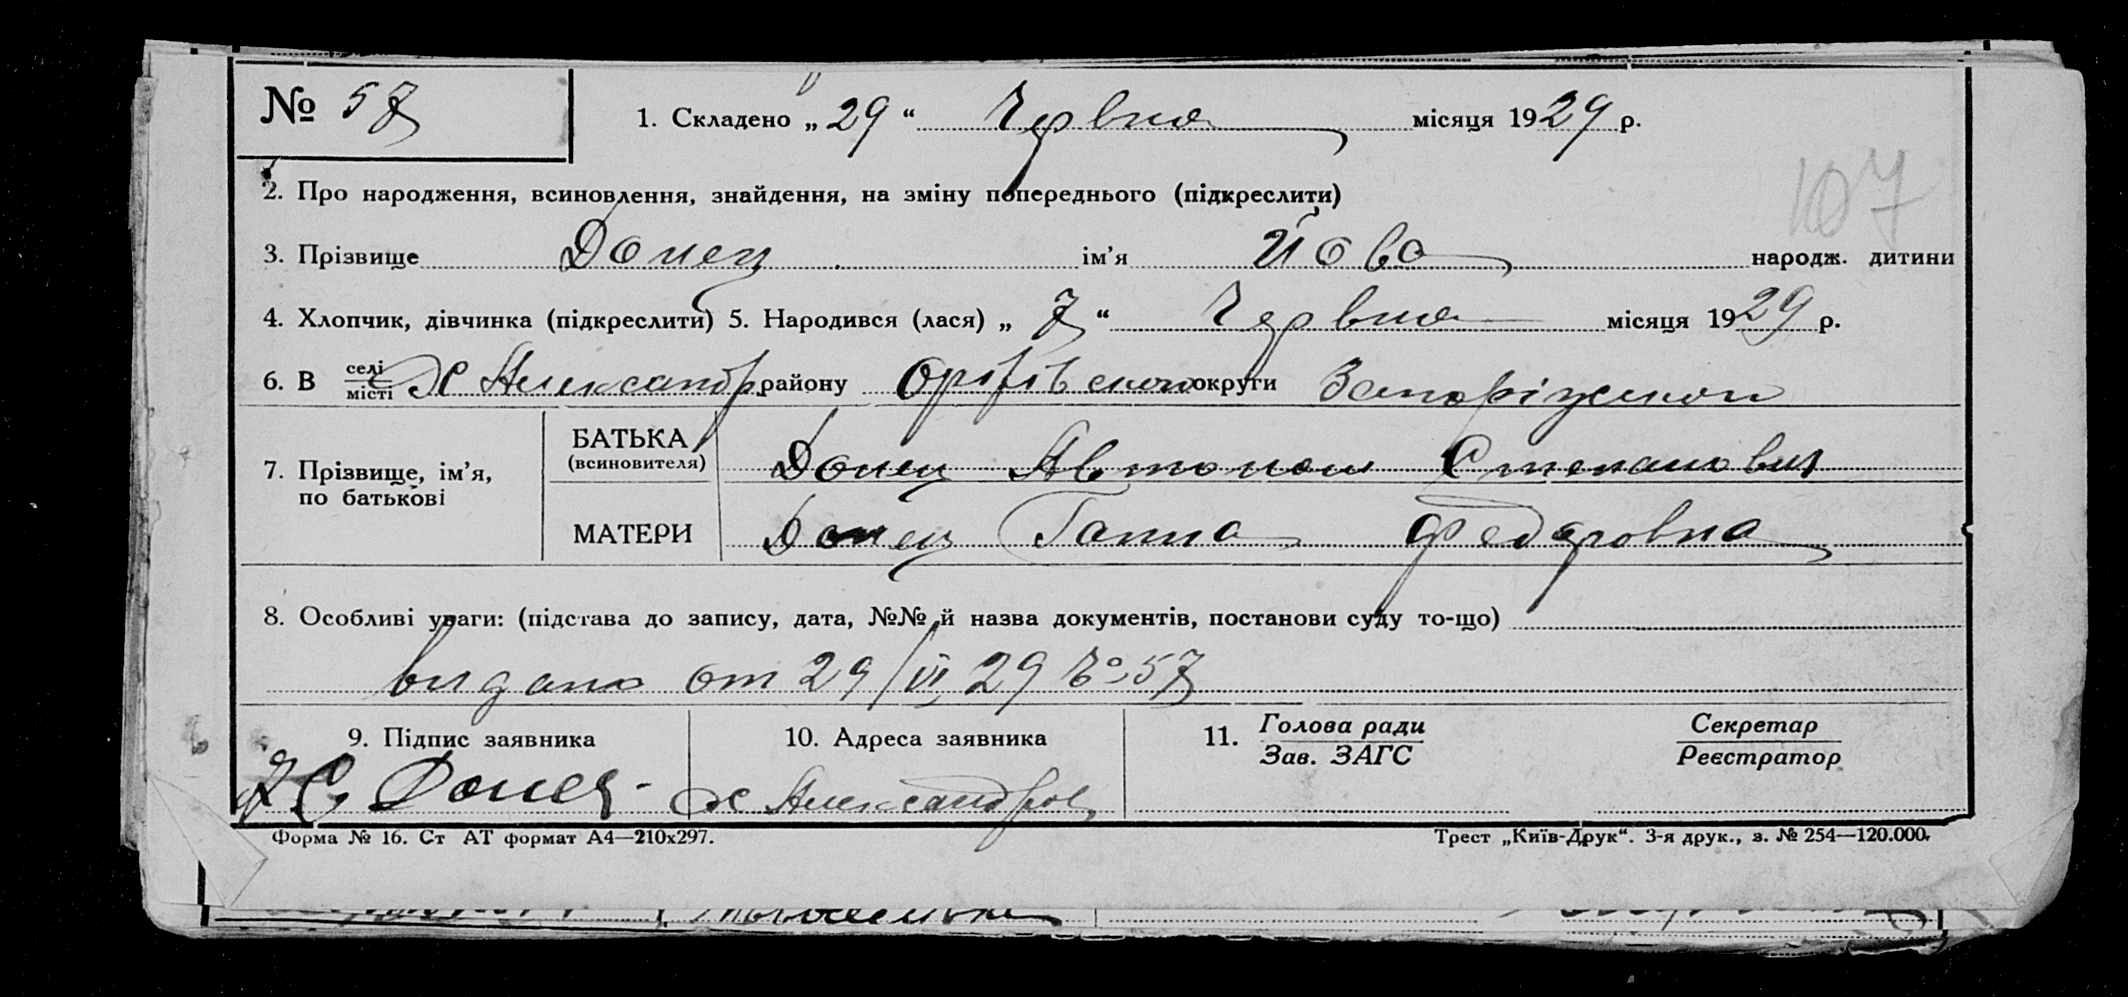 № 57
1. Складено „29“ Червня місяця 1929 р.
107
2. Про народження, всиновлення, знайдення, на зміну попереднього (підкреслити)
3. Прізвище Донец ім’я Йова народж. дитини
4. Хлопчик, дівчинка (підкреслити) 5. Народився (лася) „7“ Червня місяця 1929 р.
6. В селі місті Х Александр. району Оріхівского округи Запоріжскои
7. Прізвище, ім’я, по батькові
БАТЬКА (всиновителя) Донец Автоном Степанович
МАТЕРИ Донец Ганна Федоровна
8. Особливі уваги: (підстава до запису, дата, №№ й назва документів, постанови суду то-що)
видано от 29/VI 29 № 57
9. Підпис заявника 10. Адреса заявника 11. Голова ради Зав. ЗАГС Секретар Реєстратор
Донец х Александров
Форма № 16. Ст АТ формат А4—210х297. Трест „Київ-Друк“. 3-я друк., з. № 254—120.000.